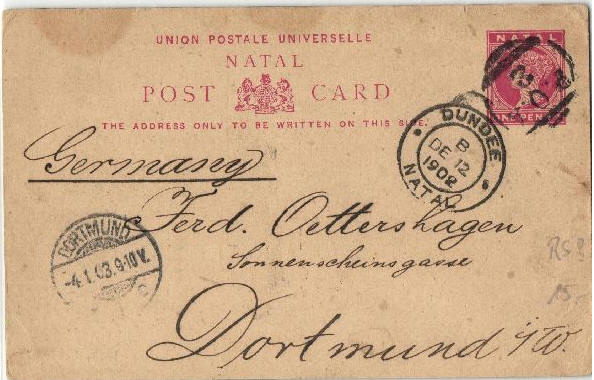 UNION POSTALE UNIVERSELLE
NATAL
POST CARD
THE ADDRESS ONLY TO BE WRITTEN ON THIS SIDE.
NATAL
ONE PENNY
DUNDEE
B
DE 12
1902
NATAL
Germany
Ferd. Oettershagen
Sonnenscheinsgasse
Dortmund i/W.
DORTMUND
-4.1.03.9-10V.
c
RS
15.-